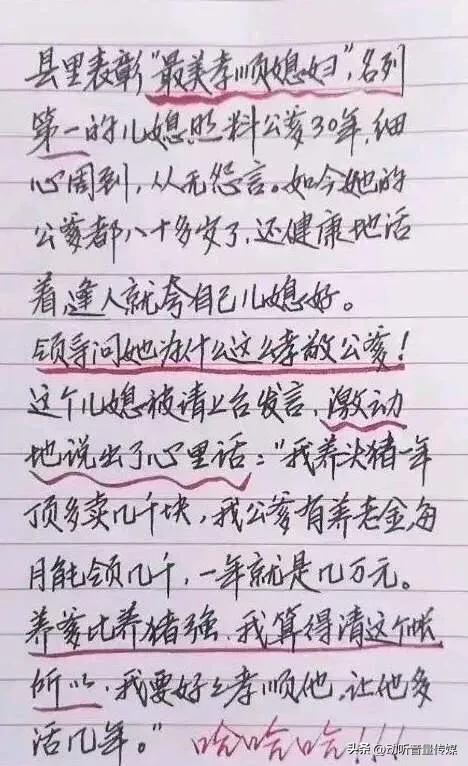 县里表彰“最美孝顺媳妇”，名列
第一的儿媳照料公爹30年，细
心周到，从无怨言。如今她的
公爹都八十多岁了，还健康地活
着，逢人就夸自己儿媳好。
领导问她为什么这么孝敬公爹！
这个儿媳被请上台发言，激动
地说出了心里话：“我养头猪一年
顶多卖几千块，我公爹有养老金，每
月能领几千，一年就是几万元。
养爹比养猪强，我算得清这个帐
所以，我要好好孝顺他，让他多
活几年。”哈哈哈！！！
头条 @动听音量传媒